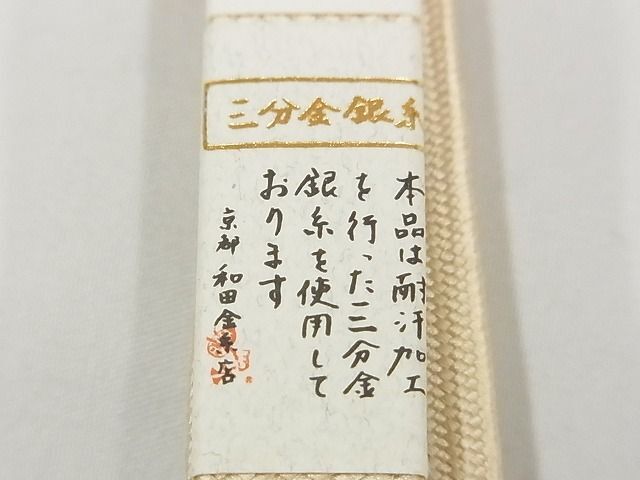 三分金銀糸
本品は耐汗加工
を行った三分金
銀糸を使用して
おります
京都 和田金糸店